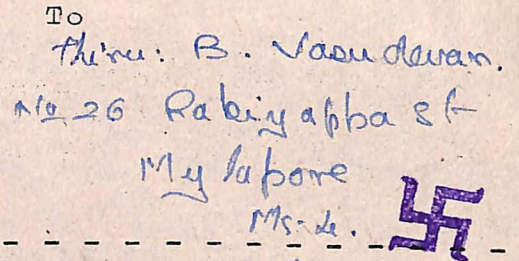 To
Thiru: B. Vasudevan.
No 26 Pakiyappa St
Mylapore
Ms-4.